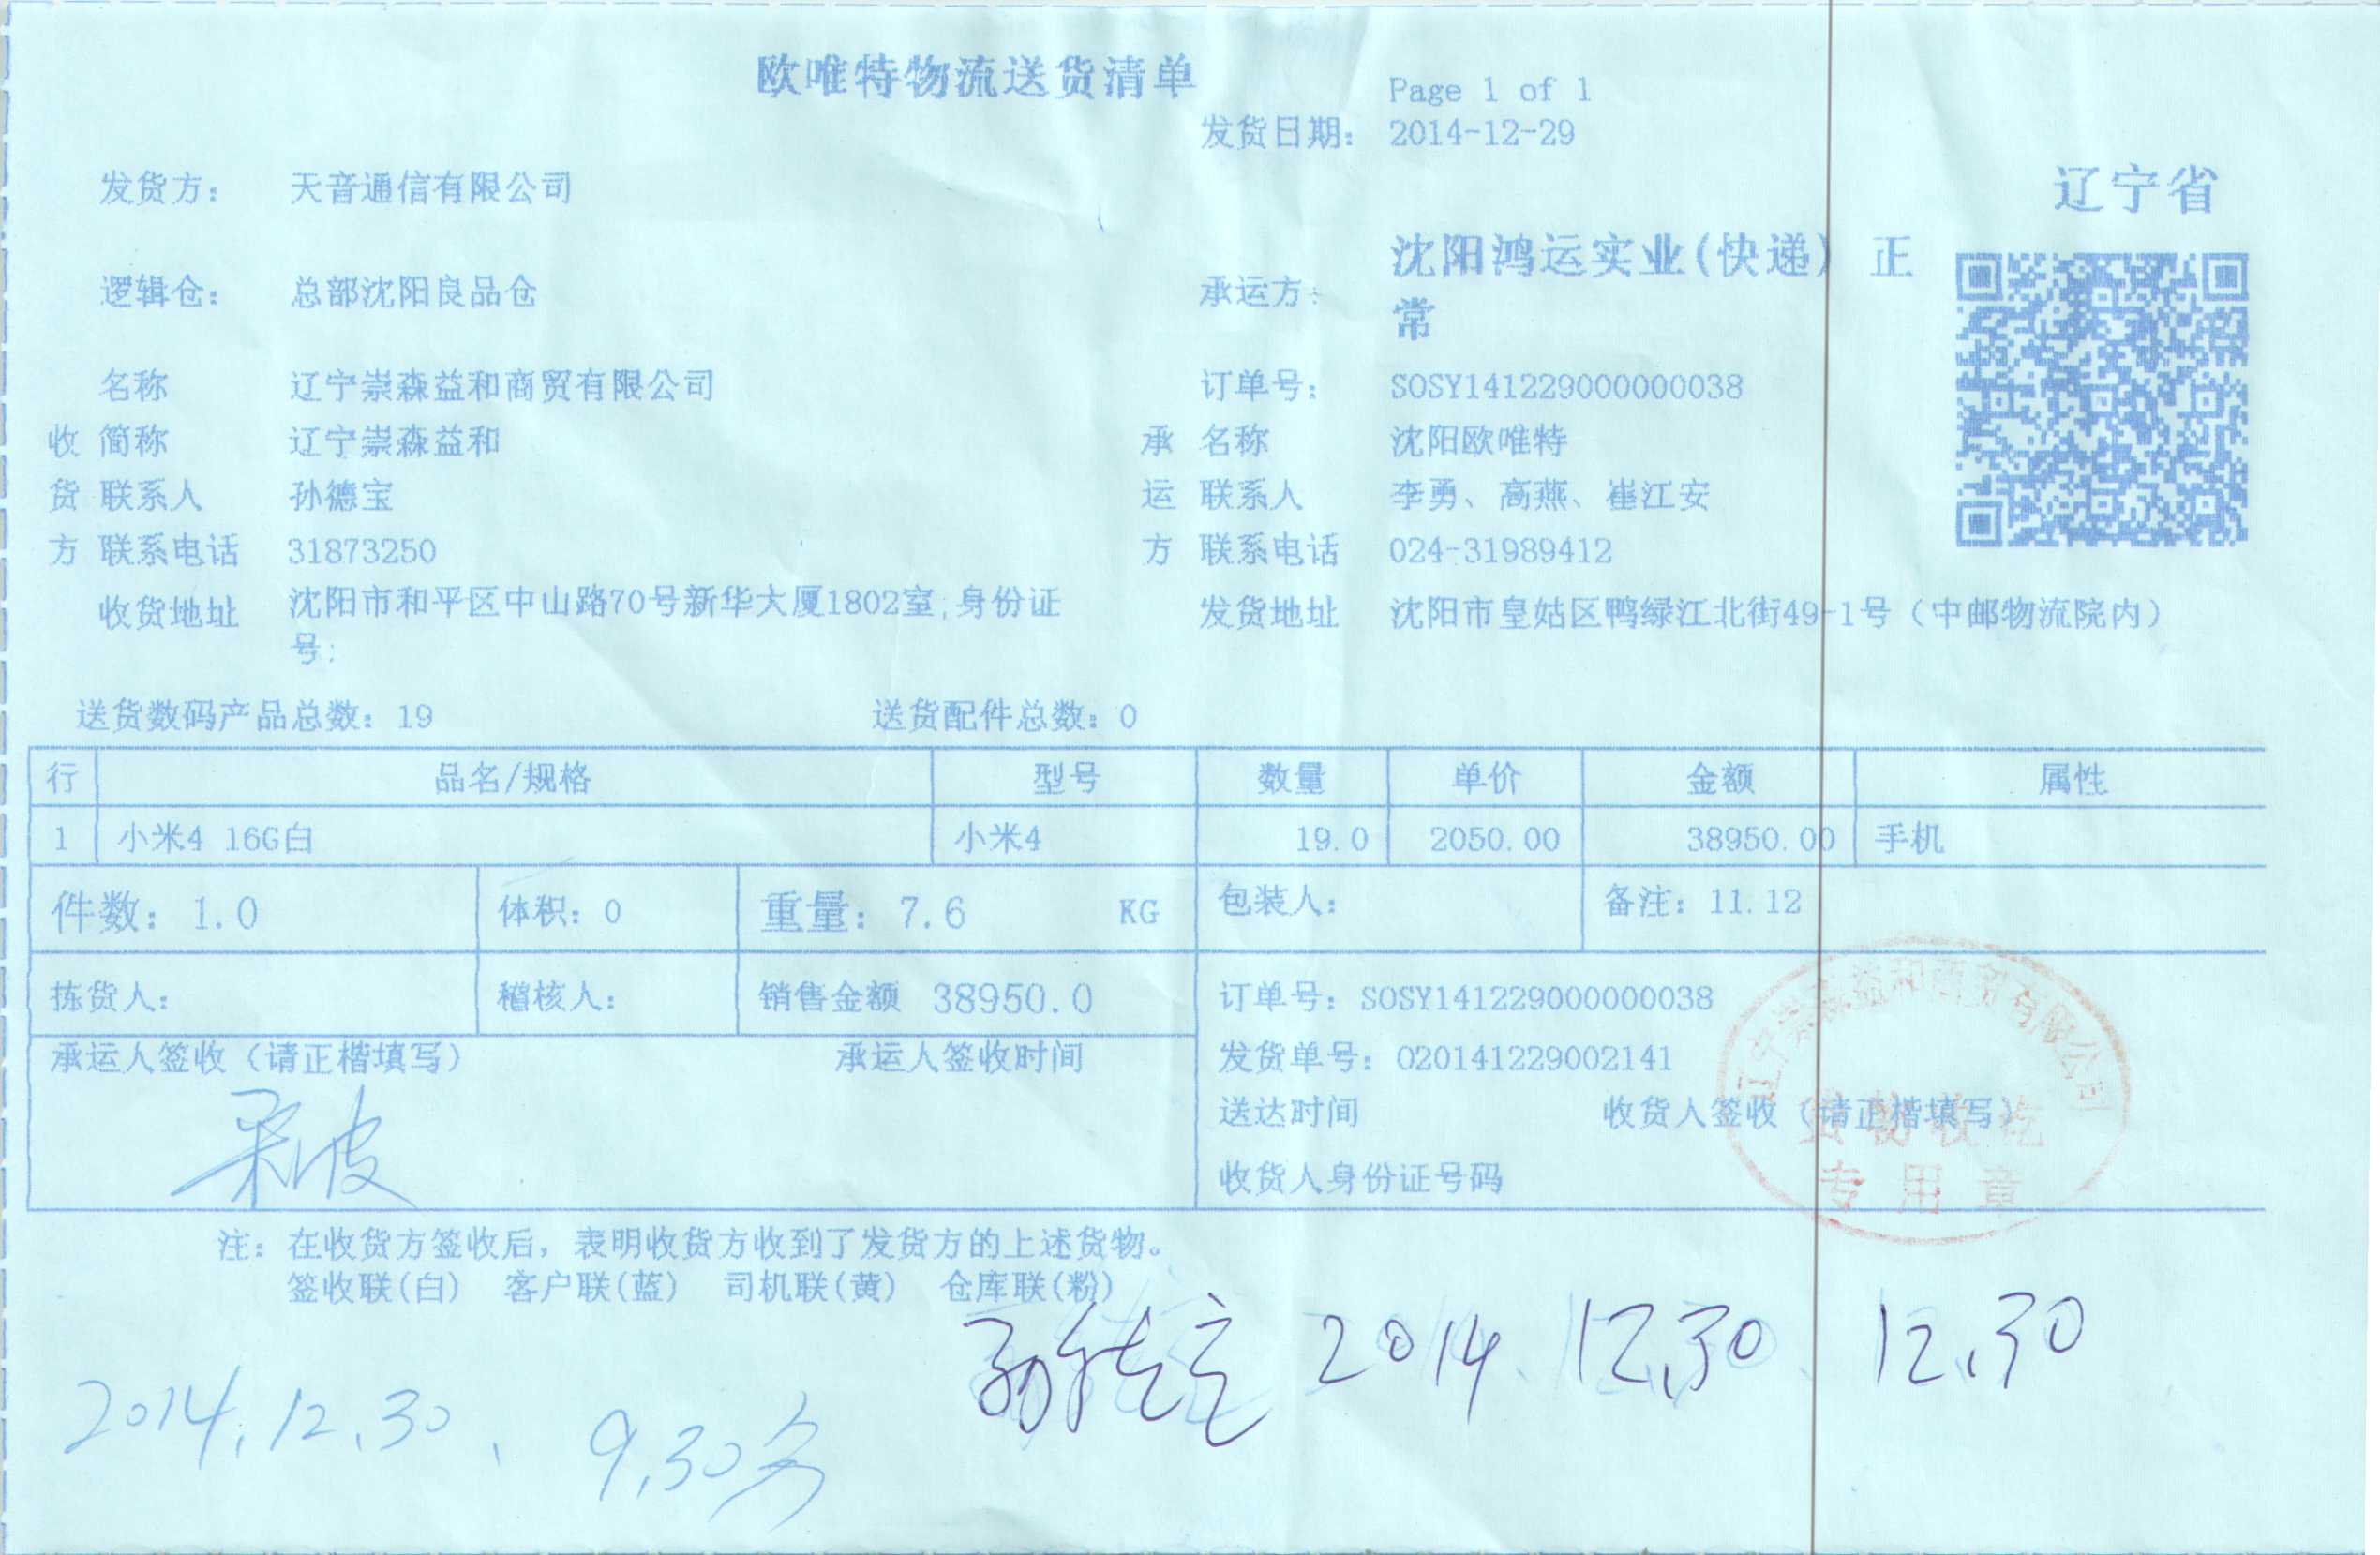 欧唯特物流送货清单
Page 1 of 1
发货日期: 2014-12-29
辽宁省
发货方: 天音通信有限公司
逻辑仓: 总部沈阳良品仓 承运方: 沈阳鸿运实业(快递) 正
常
名称 辽宁崇森益和商贸有限公司 订单号: SOSY141229000000038
收 简称 辽宁崇森益和 承 名称 沈阳欧唯特
货 联系人 孙德宝 运 联系人 李勇、高燕、崔江安
方 联系电话 31873250 方 联系电话 024-31989412
收货地址 沈阳市和平区中山路70号新华大厦1802室;身份证
号:
发货地址 沈阳市皇姑区鸭绿江北街49-1号（中邮物流院内）
送货数码产品总数: 19 送货配件总数: 0
行 品名/规格 型号 数量 单价 金额 属性
1 小米4 16G白 小米4 19.0 2050.00 38950.00 手机
件数: 1.0 体积: 0 重量: 7.6 KG 包装人: 备注: 11.12
拣货人: 稽核人: 销售金额 38950.0 订单号: SOSY141229000000038
承运人签收（请正楷填写） 承运人签收时间 发货单号: O20141229002141
送达时间 收货人签收（请正楷填写）
收货人身份证号码
辽宁崇森益和商贸有限公司
货物收讫
专用章
注: 在收货方签收后，表明收货方收到了发货方的上述货物。
签收联(白) 客户联(蓝) 司机联(黄) 仓库联(粉)
孙德宝 2014.12.30 12.30
2014.12.30、9.30分